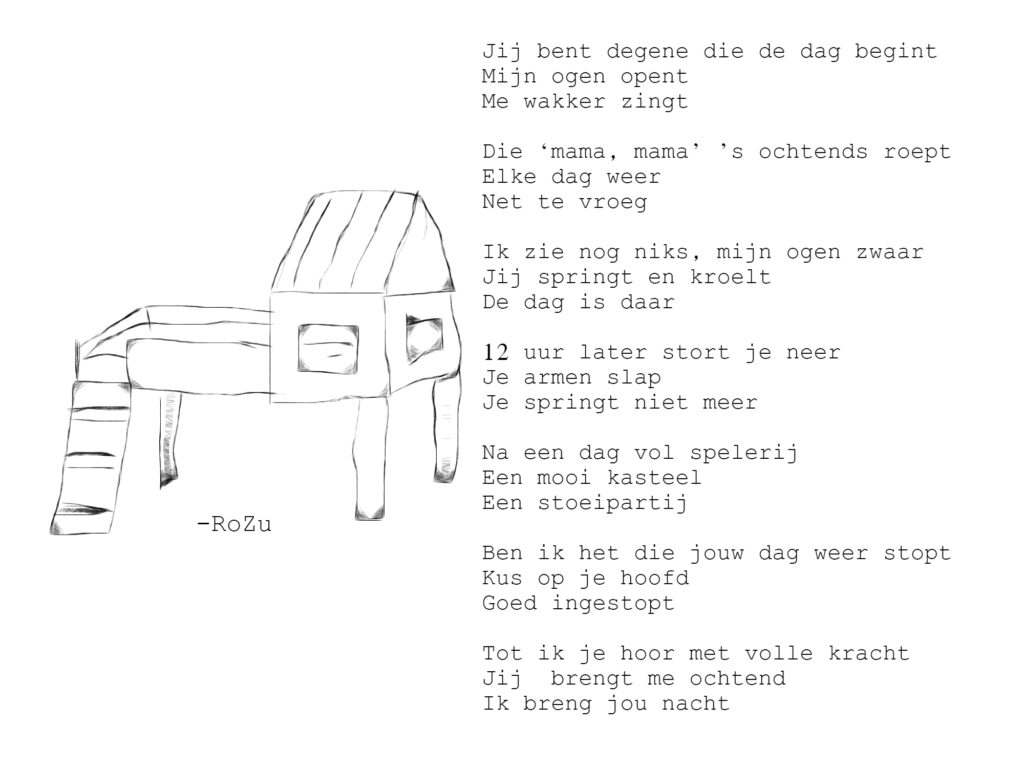 Jij bent degene die de dag begint
Mijn ogen opent
Me wakker zingt

Die ‘mama, mama’ ’s ochtends roept
Elke dag weer
Net te vroeg

Ik zie nog niks, mijn ogen zwaar
Jij springt en kroelt
De dag is daar

12 uur later stort je neer
Je armen slap
Je springt niet meer

Na een dag vol spelerij
Een mooi kasteel
Een stoeipartij

Ben ik het die jouw dag weer stopt
Kus op je hoofd
Goed ingestopt

Tot ik je hoor met volle kracht
Jij  brengt me ochtend
Ik breng jou nacht

-RoZu